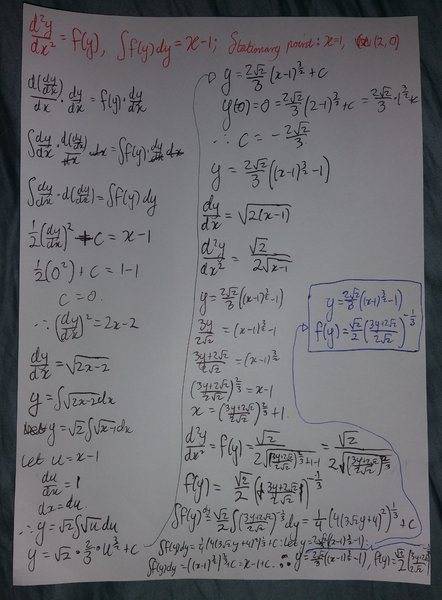 d²y/dx² = f(y), ∫f(y)dy = x-1; Stationary point: x=1, (2,0)
d(dy/dx)/dx · dy/dx = f(y)·dy/dx
∫dy/dx · d(dy/dx)/dx dx = ∫f(y)·dy/dx dx
∫dy/dx · d(dy/dx) = ∫f(y)dy
½(dy/dx)² + c = x-1
½(0²) + c = 1-1
c = 0.
∴ (dy/dx)² = 2x-2
dy/dx = √(2x-2)
y = ∫√(2x-2)dx
y = √2∫√(x-1)dx
Let u = x-1
du/dx = 1
dx = du
∴ y = √2∫√u du
y = √2 · 2/3 · u^(3/2) + c
y = 2√2/3 (x-1)^(3/2) + c
y(0) = 0 = 2√2/3 (2-1)^(3/2) + c = 2√2/3 · 1^(3/2) + c
∴ c = -2√2/3
y = 2√2/3 ((x-1)^(3/2) - 1)
dy/dx = √(2(x-1))
d²y/dx² = √2/(2√(x-1))
y = 2√2/3 ((x-1)^(3/2) - 1)
3y/2√2 = (x-1)^(3/2) - 1
(3y+2√2)/2√2 = (x-1)^(3/2)
((3y+2√2)/2√2)^(2/3) = x-1
x = ((3y+2√2)/2√2)^(2/3) + 1
d²y/dx² = f(y) = √2/(2√(((3y+2√2)/2√2)^(2/3)+1-1)) = √2/(2√(((3y+2√2)/2√2)^(2/3)))
f(y) = √2/2 ((3y+2√2)/2√2)^(-1/3)
∫f(y)dy = √2/2 ∫((3y+2√2)/2√2)^(-1/3) dy = ¼(4(3√2y+4)²)^(1/3) + c
∫f(y)dy = ¼(4(3√2y+4)²)^(1/3) + c: Let y = 2√2/3((x-1)^(3/2)-1)
∫f(y)dy = ((x-1)^(3/2))^(2/3) + c = x-1+c. ∴ y = 2√2/3((x-1)^(3/2)-1), f(y) = √2/2((3y+2√2)/2√2)
y = 2√2/3 ((x-1)^(3/2) - 1)
f(y) = √2/2 ((3y+2√2)/2√2)^(-1/3)